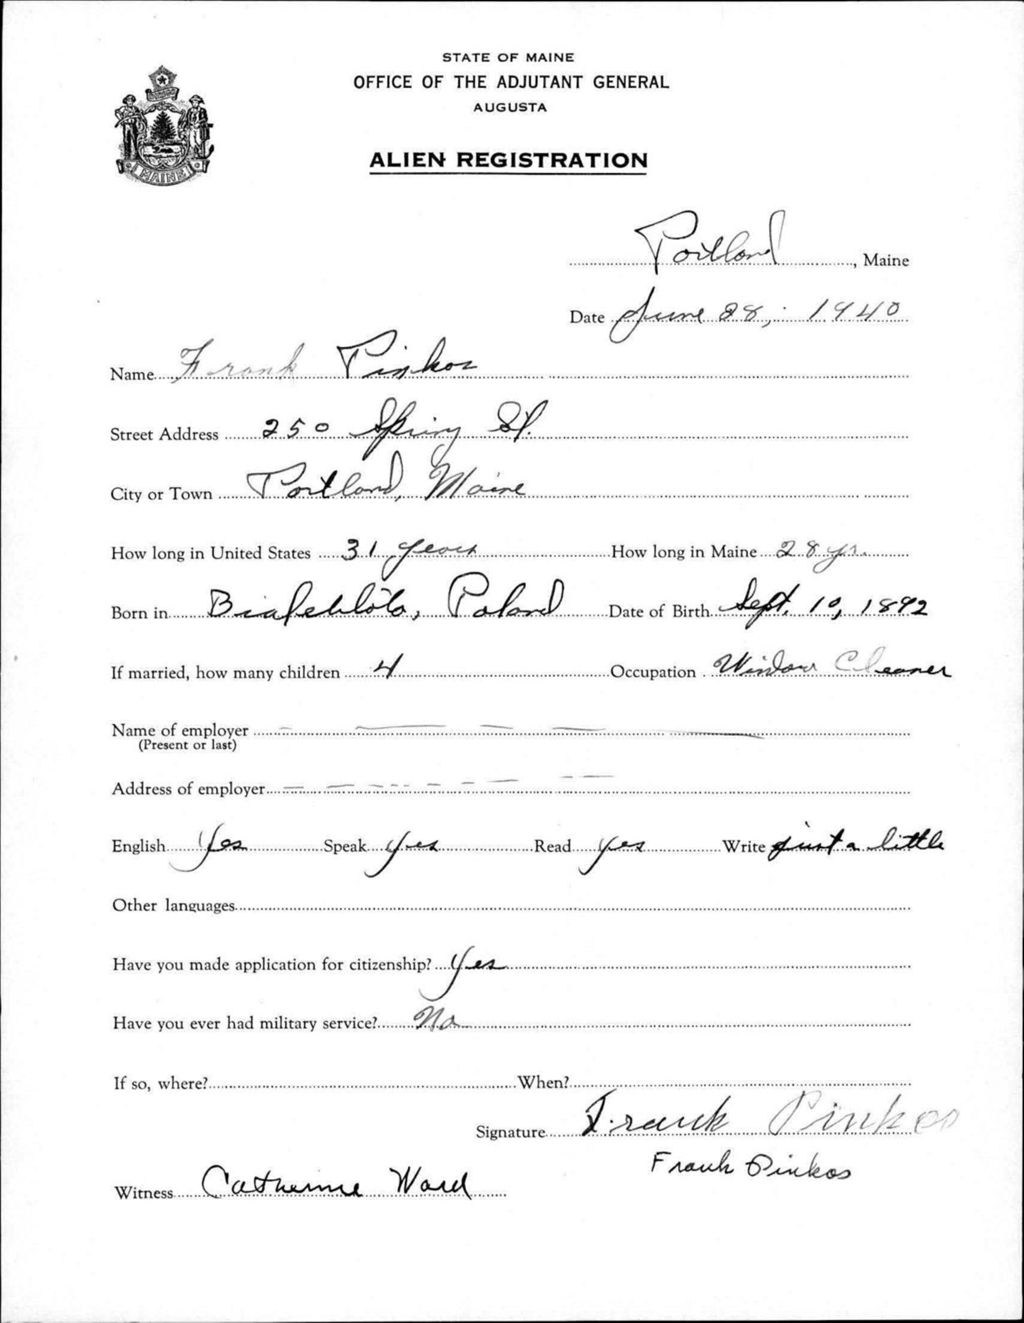 STATE OF MAINE
OFFICE OF THE ADJUTANT GENERAL
AUGUSTA
ALIEN REGISTRATION
MAINE
Portland, Maine
Date June 28, 1940
Name Frank Pinkos
Street Address 250 Spring St.
City or Town Portland, Maine
How long in United States 31 years How long in Maine 28 yr.
Born in Poland Date of Birth Sept. 10, 1892
If married, how many children 4 Occupation Window Cleaner
Name of employer
(Present or last)
Address of employer
English Yes Speak yes Read yes Write just a little
Other languages
Have you made application for citizenship? Yes
Have you ever had military service? No
If so, where? When?
Signature Frank Pinkos
Frank Pinkos
Witness Catherine Ward